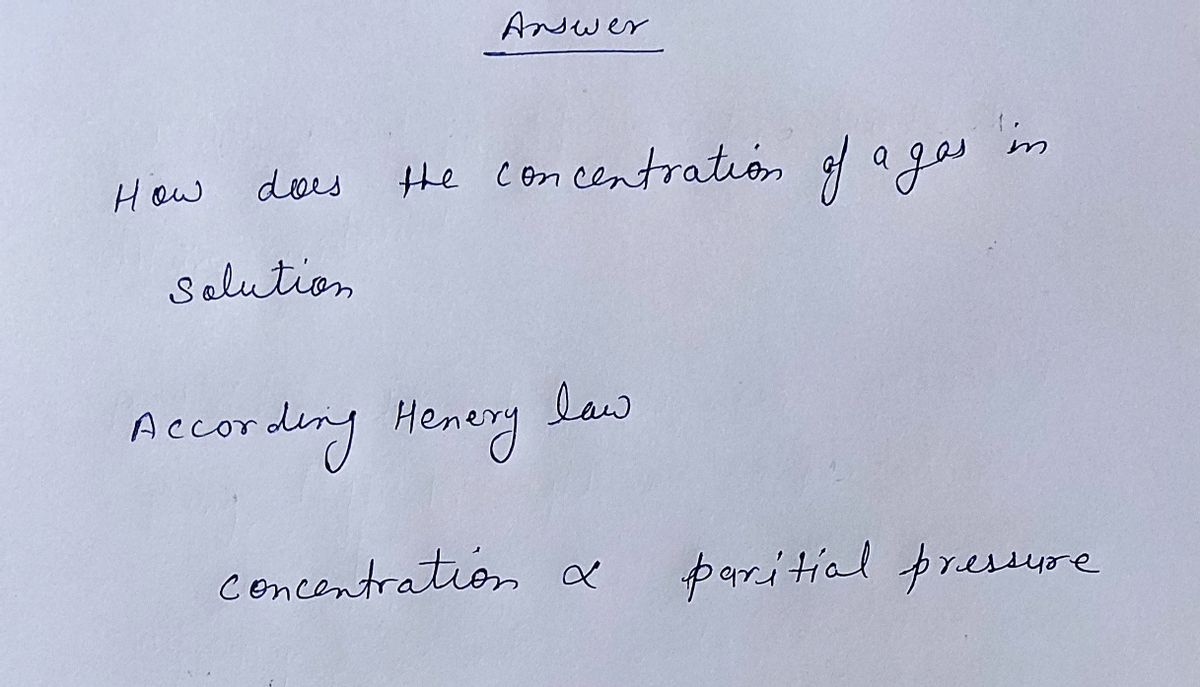 Answer
How does the concentration of a gas in
solution
According Henery law
concentration ∝ paritial pressure